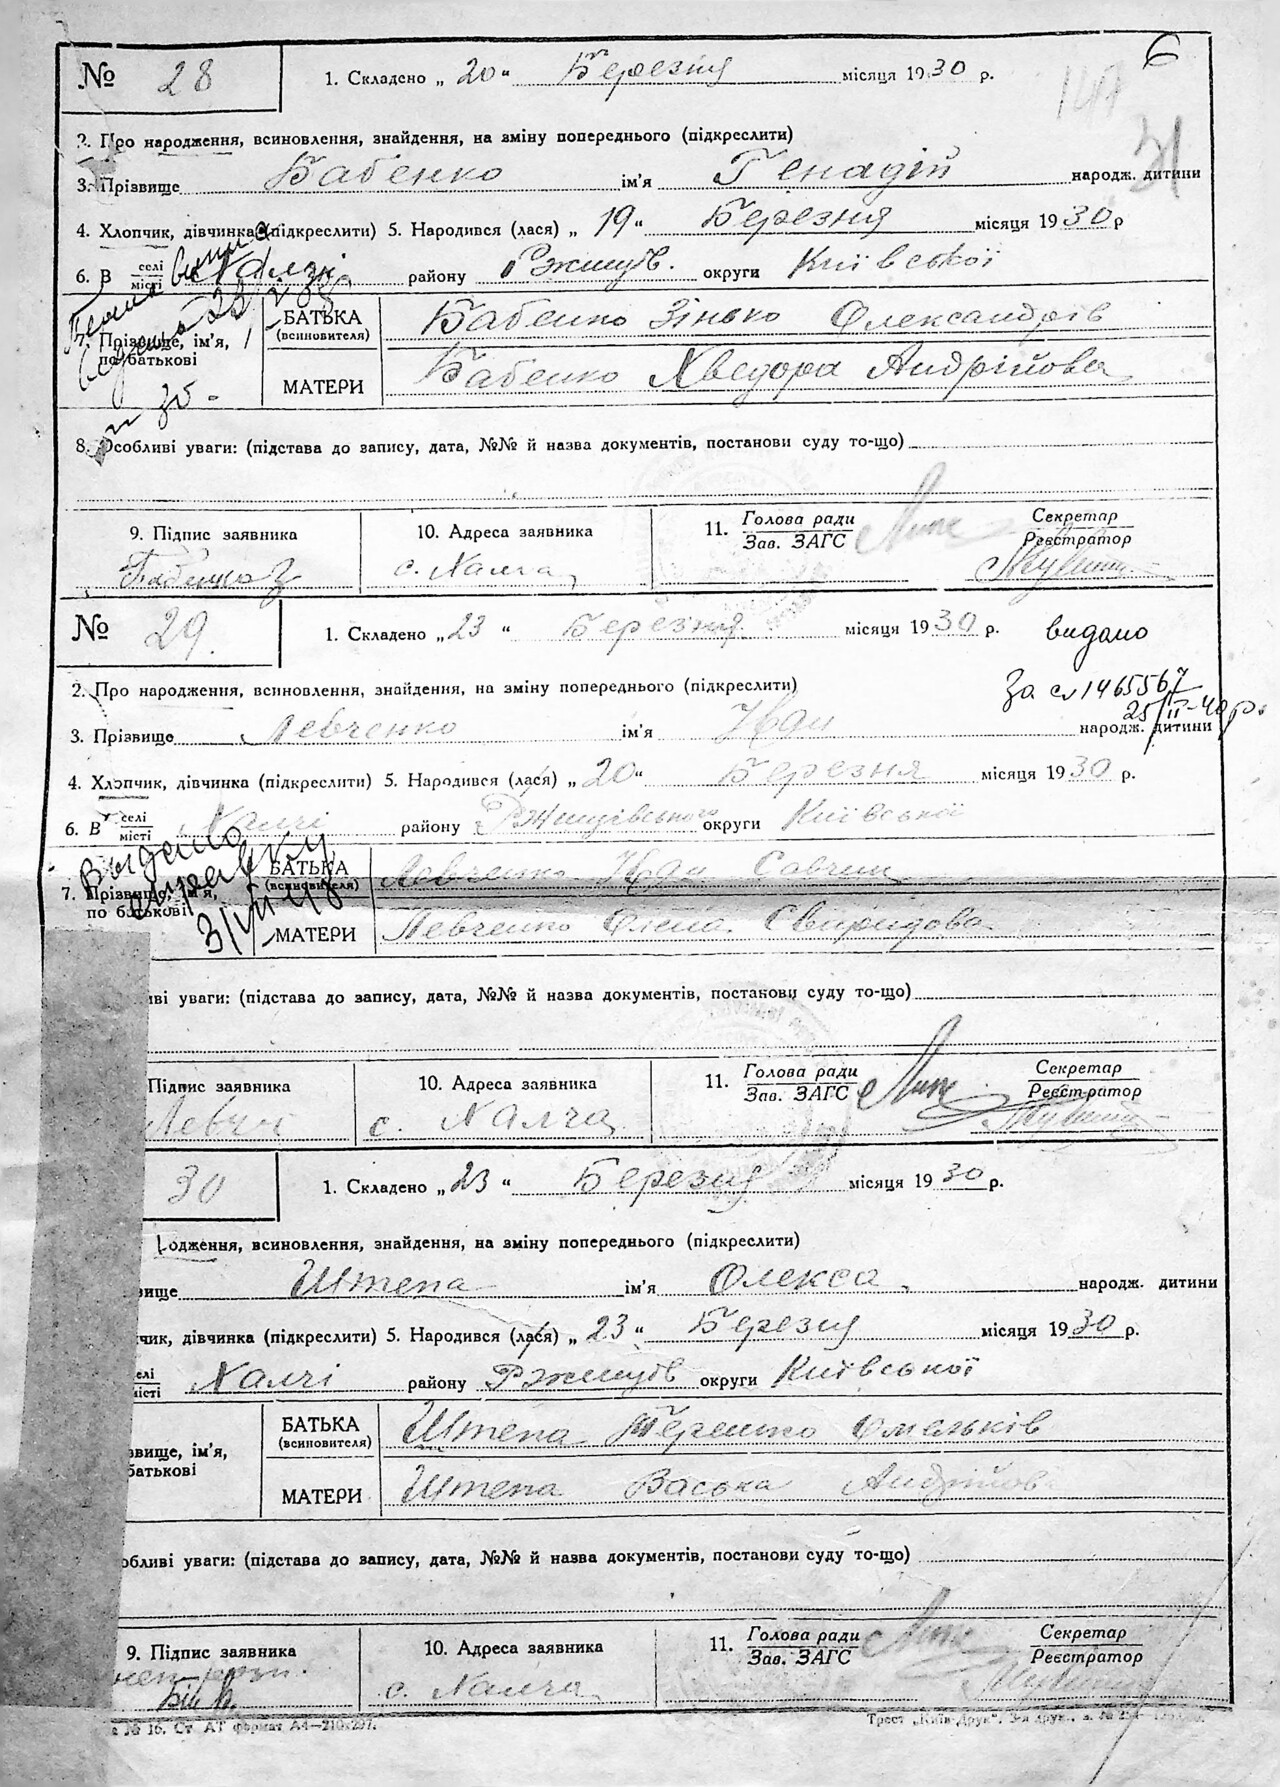 6
№ 28 1. Складено „ 20 “ Березня місяця 1930 р.
31
2. Про народження, всиновлення, знайдення, на зміну попереднього (підкреслити)
3. Прізвище Бабенко ім'я Генадій народж. дитини
4. Хлопчик, дівчинка (підкреслити) 5. Народився (лася) „ 19 “ Березня місяця 1930 р
6. В селі/місті Халчі району Ржищів. округи Київської
7. Прізвище, ім'я, по батькові
БАТЬКА (всиновителя) Бабенко Зінько Олександрів
МАТЕРИ Бабенко Хведора Андрійова
8. Особливі уваги: (підстава до запису, дата, №№ й назва документів, постанови суду то-що)
9. Підпис заявника 10. Адреса заявника 11. Голова ради / Зав. ЗАГС Секретар / Реєстратор
Бабенко З с. Халча
№ 29. 1. Складено „ 23 “ Березня місяця 1930 р. видано
2. Про народження, всиновлення, знайдення, на зміну попереднього (підкреслити)
За сл 1465567
25/II-40 р.
3. Прізвище Левченко ім'я Іван народж. дитини
4. Хлопчик, дівчинка (підкреслити) 5. Народився (лася) „ 20 “ Березня місяця 1930 р.
6. В селі/місті Халчі району Ржищівського округи Київської
Выдано справку
7. Прізвище, ім'я, по батькові
БАТЬКА (всиновителя) Левченко Іван Савчин
МАТЕРИ Левченко Олена Свиридова
ві уваги: (підстава до запису, дата, №№ й назва документів, постанови суду то-що)
Підпис заявника 10. Адреса заявника 11. Голова ради / Зав. ЗАГС Секретар / Реєстратор
Левчн с. Халча
30 1. Складено „ 23 “ Березня місяця 1930 р.
одження, всиновлення, знайдення, на зміну попереднього (підкреслити)
вище Штепа ім'я Олекса народж. дитини
чик, дівчинка (підкреслити) 5. Народився (лася) „ 23 “ Березня місяця 1930 р.
селі/місті Халчі району Ржищів округи Київської
звище, ім'я, батькові
БАТЬКА (всиновителя) Штепа Терешко Омельків
МАТЕРИ Штепа Васька Андрійов
обливі уваги: (підстава до запису, дата, №№ й назва документів, постанови суду то-що)
9. Підпис заявника 10. Адреса заявника 11. Голова ради / Зав. ЗАГС Секретар / Реєстратор
с. Халча
№ 16. Ст. АТ формат А4—210х297. Трест „Київ-Друк“,